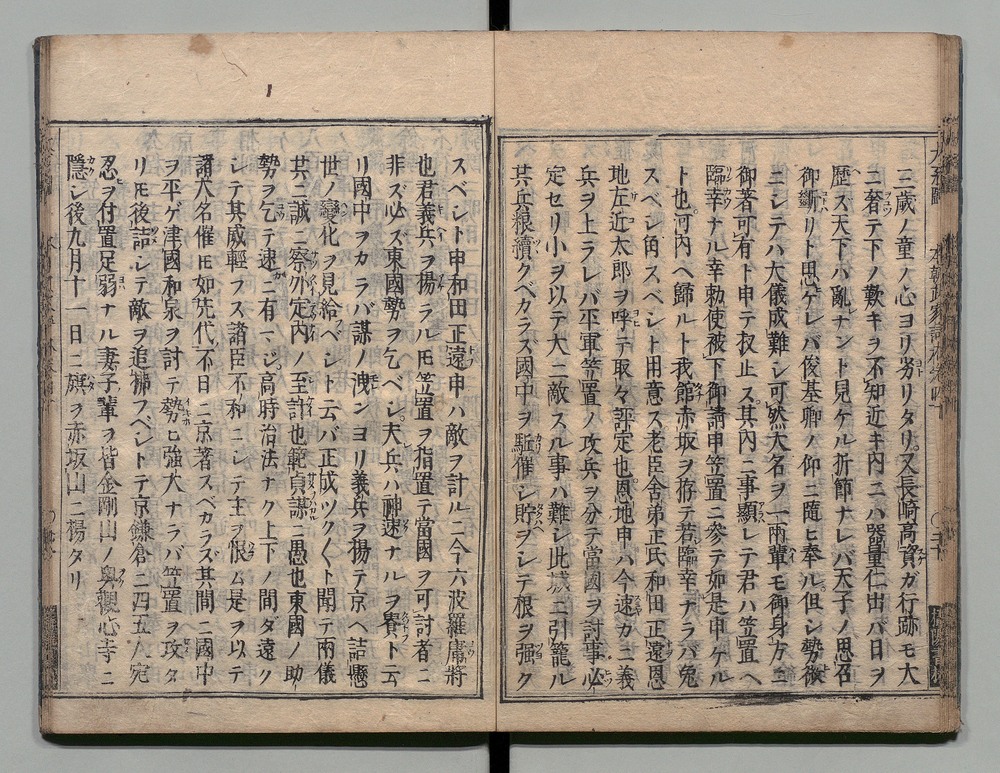 三歳ノ童ノ心ヨリ劣リタリ又長崎高資ガ行跡モ大
ニ奢テ下ノ歎キヲ不知近キ内ニハ器量仁出バ日ヲ
歴ズ天下ハ亂ナント見ケル折節ナレバ天子ノ思召
御斷リト思ケレバ俊基卿ノ仰ニ隨ヒ奉ル但シ勢微
ニシテハ大儀成難シ可然大名ヲ一兩輩モ御身方ニ
御著可有ト申テ扠止ス其內ニ事顯レテ君ハ笠置ヘ
臨幸ナル幸勅使被下御請申笠置ニ參テ如是申ケル
ト也河內ヘ歸ルト我館赤坂ヲ拵テ若臨幸ナラバ兎
スベシ角スベシト用意ス老臣舍弟正氏和田正遠恩
地左近太郎ヲ呼テ取々評定也恩地申ハ今速カニ義
兵ヲ上ラレバ平軍笠置ノ攻兵ヲ分テ當國ヲ討事必
定セリ小ヲ以テ大ニ敵スル事ハ難シ此城ニ引籠ル
其兵粮續クベカラズ國中ヲ駈催シ貯ヲシテ根ヲ强ク
スベシト申和田正遠申ハ敵ヲ計ルニ今六波羅庸將
也君義兵ヲ揚ラルモ笠置ヲ指置テ當國ヲ可討者ニ
非ズ必ズ東國勢ヲ乞ベシ夫兵ハ神速ナルヲ寳ト云
リ國中ヲカラバ謀ノ洩ンヨリ義兵ヲ揚テ京ヘ詰懸
世ノ變化ヲ見給ベシト云バ正成ツクヽト聞テ兩儀
共ニ誠ニ察外定內ノ至計也範貞謀ニ愚也東國ノ助
勢ヲ乞テ速ニ有マジ高時治法ナク上下ノ間ダ遠ク
シテ其威輕フス諸臣不和ニシテ主ヲ恨ム是ヲ以テ
謂大名催モ如先代不日ニ京著スベカラズ其間ニ國中
ヲ平ゲ津國和泉ヲ討テ勢ヒ強大ナラバ笠置ヲ攻タ
リモ後詰シテ敵ヲ追拂フベシトテ京鎌倉ニ四五人宛
忍ヲ付置足弱ナル妻子輩ヲ皆金剛山ノ奥觀心寺ニ
隱シ後九月十一日ニ旗ヲ赤坂山ニ楊タリ